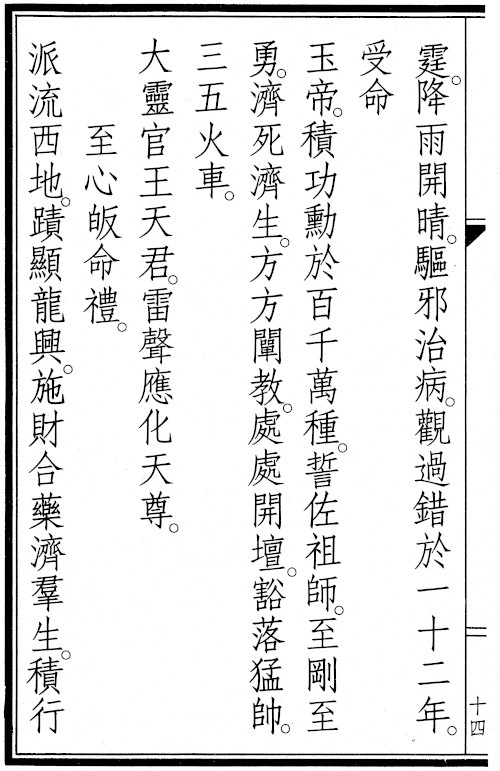 霆。降雨開晴。驅邪治病。觀過錯於一十二年。
受命
玉帝。積功勳於百千萬種。誓佐祖師。至剛至
勇。濟死濟生。方方闡教。處處開壇。豁落猛帥。
三五火車。
大靈官王天君。雷聲應化天尊。
至心皈命禮。
派流西地。蹟顯龍興。施財合藥濟羣生。積行
十四